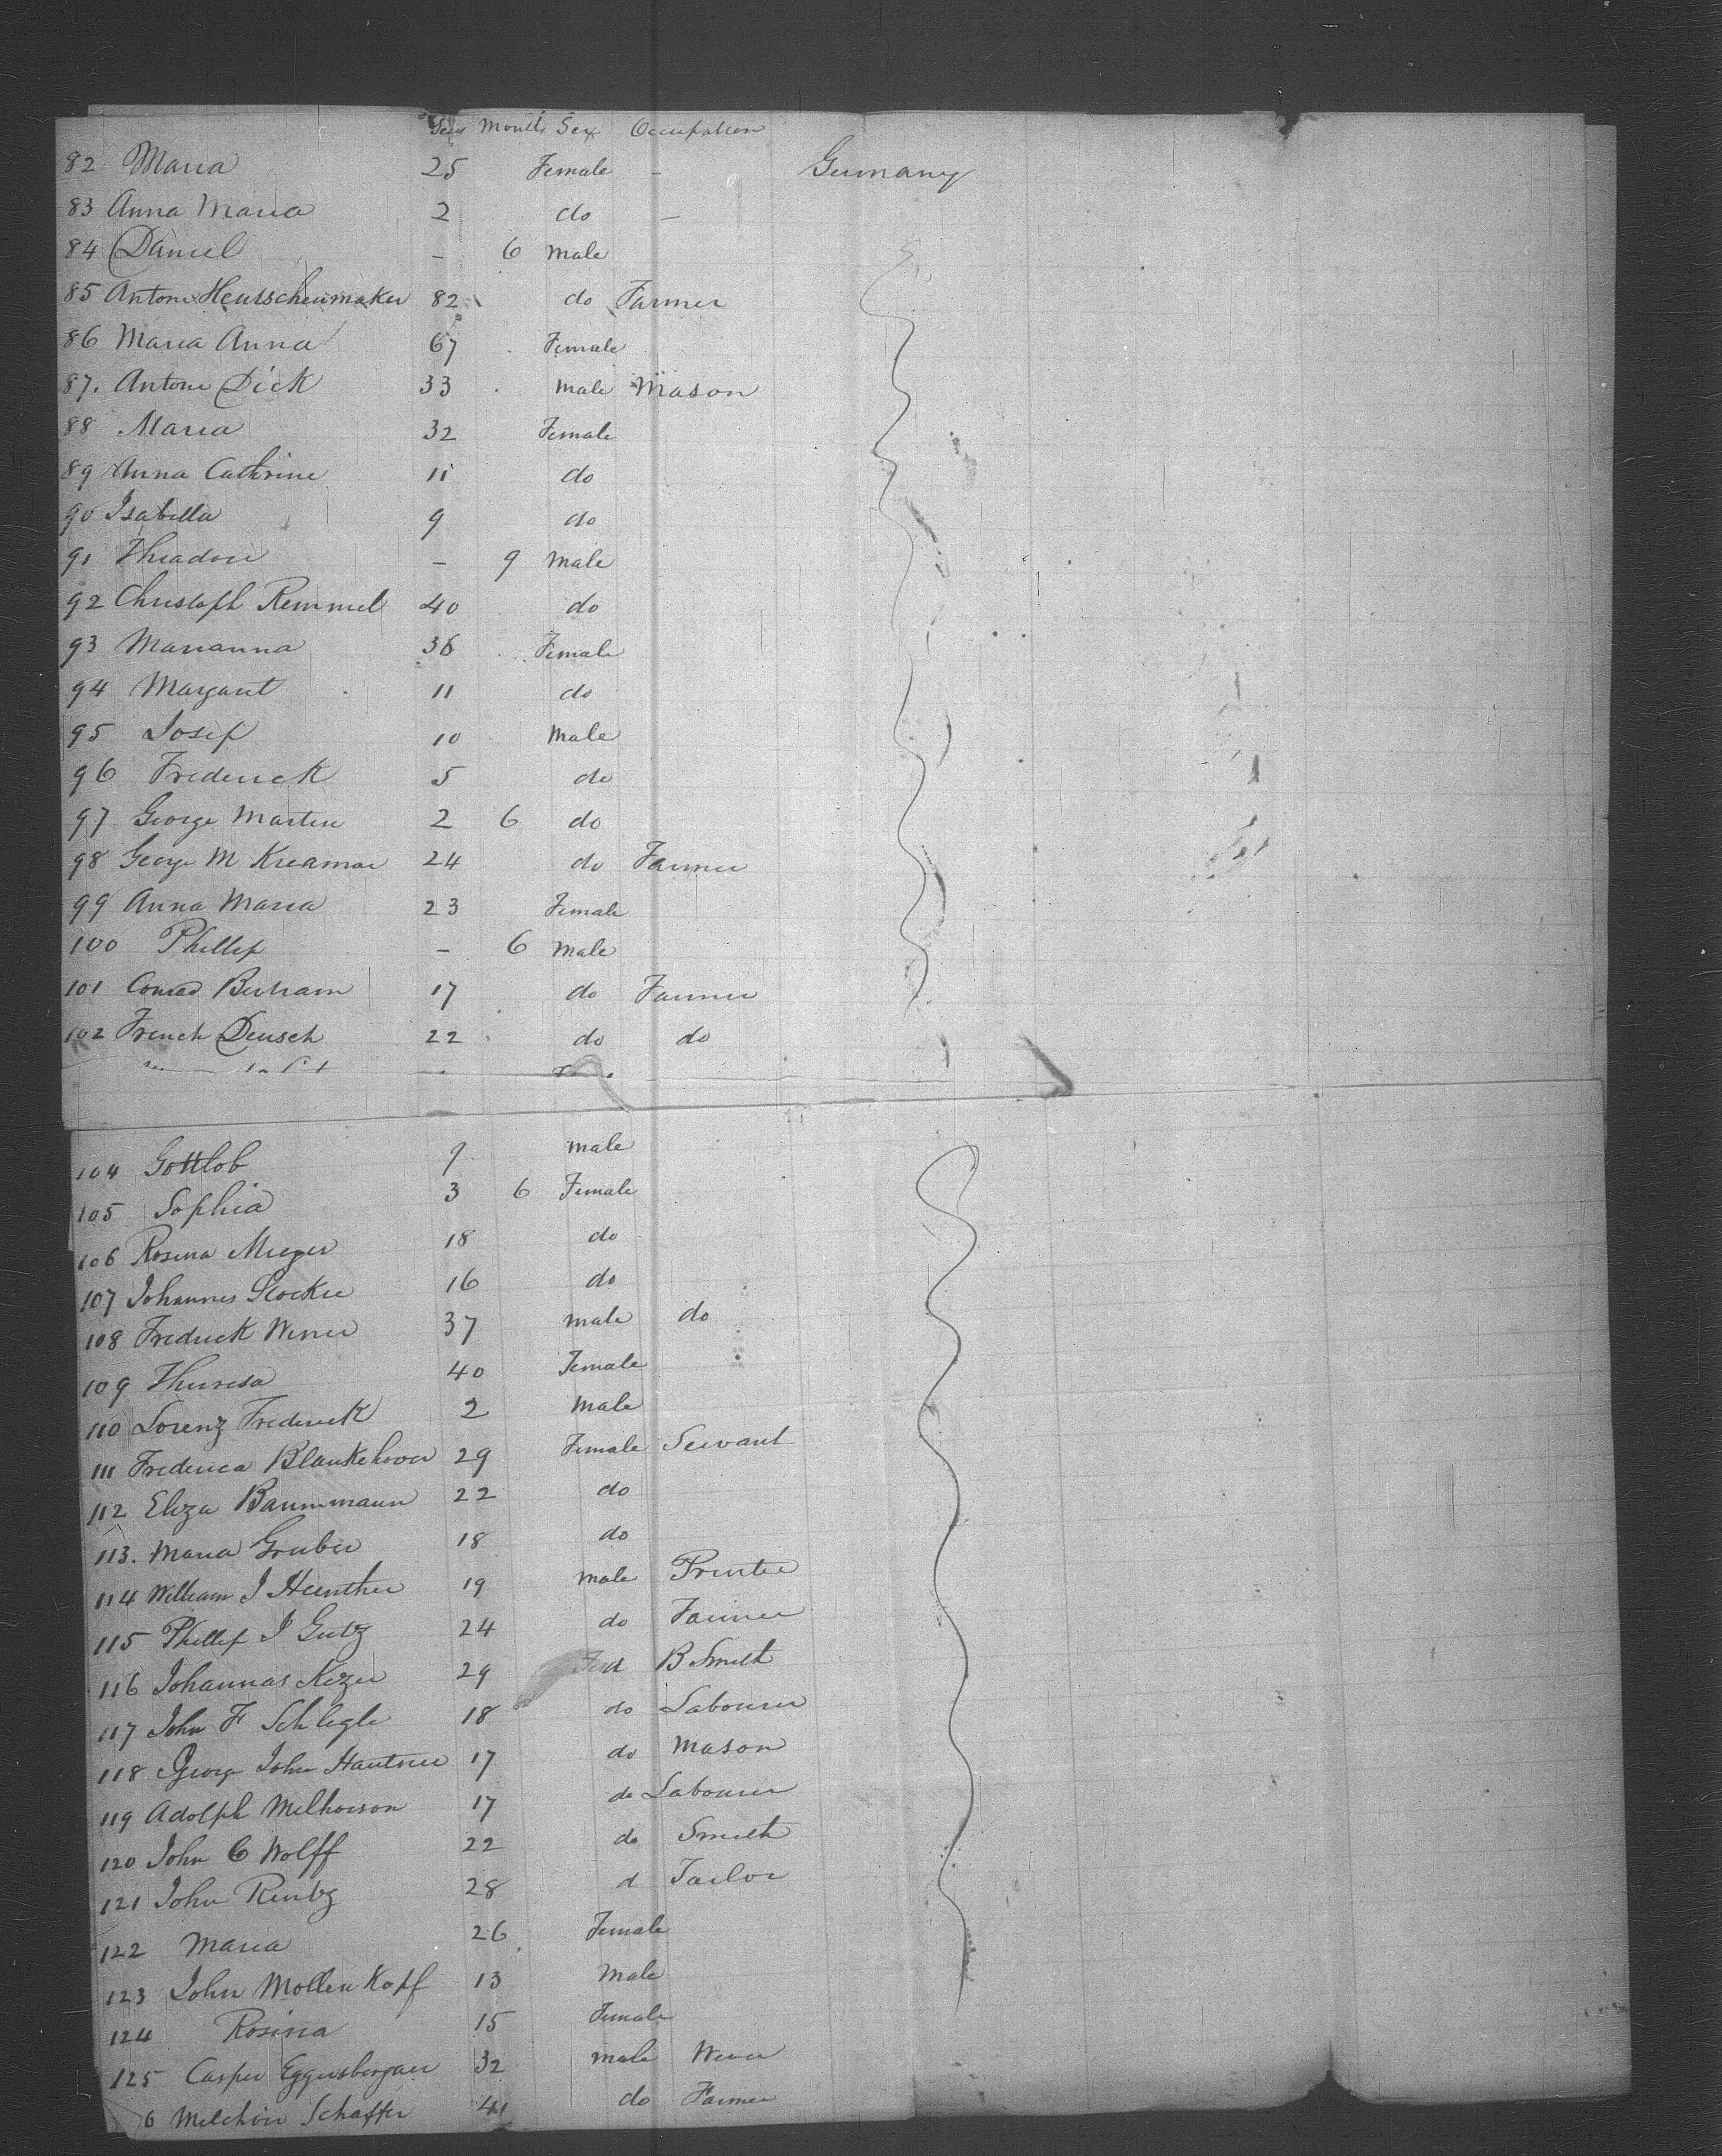 Years Months Sex Occupation
82 Maria 25 Female - Germany
83 Anna Maria 2 do -
84 Daniel - 6 male
85 Antone Heutschenmaker 82 do Farmer
86 Maria Anna 67 Female
87. Antone Dick 33 male Mason
88 Maria 32 Female
89 Anna Cathrine 11 do
90 Isabella 9 do
91 Theadore - 9 male
92 Christoph Remmel 40 do
93 Marianna 36 Female
94 Margaret 11 do
95 Josef 10 Male
96 Frederick 5 do
97 George Marten 2 6 do
98 George M Kreamar 24 do Farmer
99 Anna Maria 23 Female
100 Phillip - 6 male
101 Conrad Bertram 17 do Farmer
102 French Deusch 22 do do
104 Gottlob 9 male
105 Sophia 3 6 Female
106 Rosina Meyer 18 do
107 Johannes Stocker 16 do
108 Fredrick Werner 37 male do
109 Theresa 40 Female
110 Lorenz Frederick 2 male
111 Frederica Blankehover 29 Female Servant
112 Eliza Baummann 22 do
113. Maria Gruber 18 do
114 William J Hunther 19 male Printer
115 Phillip J Gutz 24 do Farmer
116 Johannas Kezer 29 B Smith
117 John F Schlegle 18 do Labourer
118 George John Hautner 17 do Mason
119 Adolph Melhorson 17 do Labourer
120 John C Wolff 22 do Smith
121 John Rentz 28 d Tailor
122 Maria 26 Female
123 John Mollenkopf 13 Male
124 Rosina 15 Female
125 Casper Eggersbergaer 32 male Wever
6 Melchior Schaffer 41 do Farmer